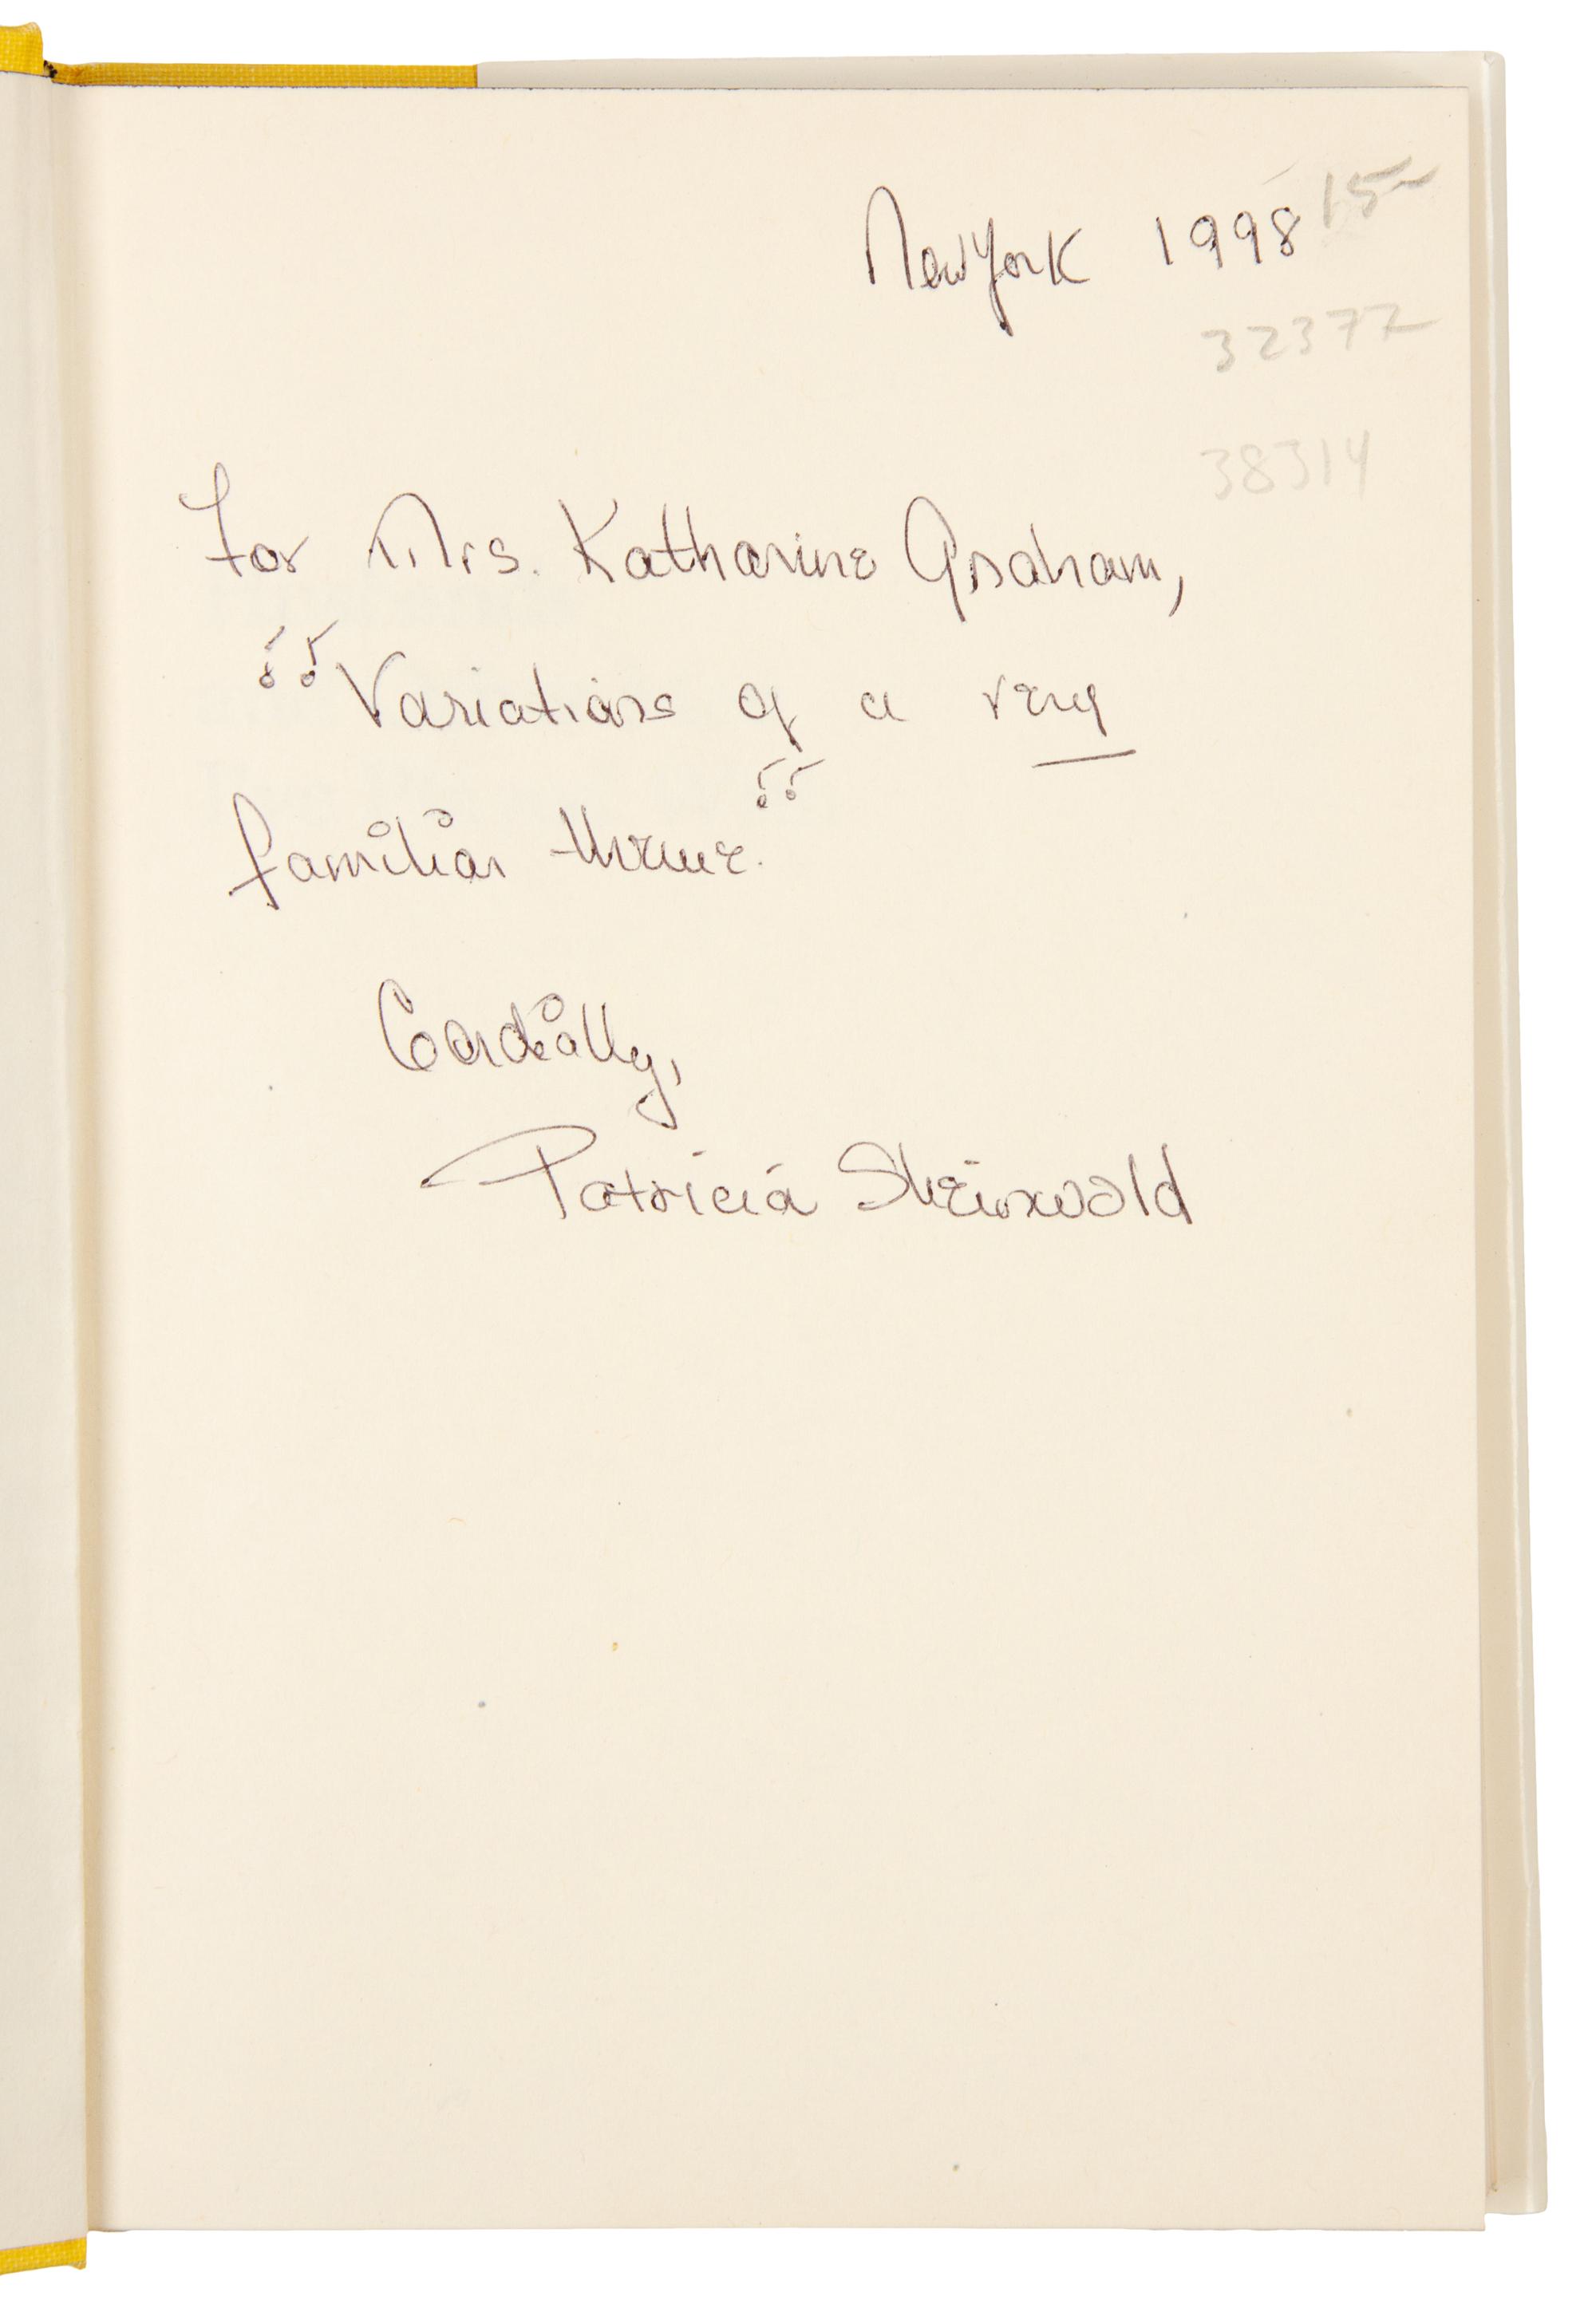 New York 1998 15-
32377
38314
For Mrs. Katharine Graham,
"Variations of a very
familiar theme."
Cordially,
Patricia Sheinwold